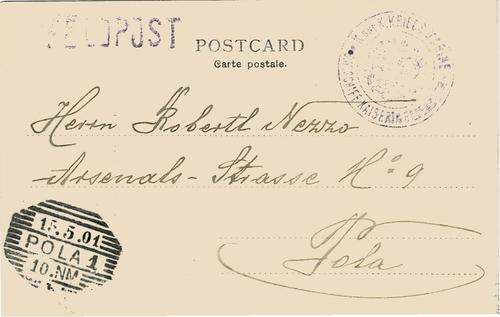 FELDPOST
POSTCARD
Carte postale.
K. u. K. KRIEGS-MARINE
SCHIFF KAISERIN
Herrn Robertl Nezzo
Arsenals-Strasse No 9
Pola
15.5.01
POLA 1
10.NM